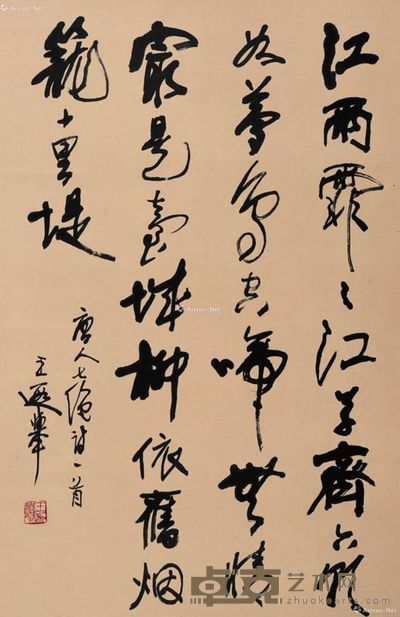 江雨霏霏江草齐六朝
如梦鸟空啼无情
最是台城柳依旧烟
笼十里堤
唐人七绝诗一首
王遐举
卓克艺术网
zhuokearts.com
Artron.Net